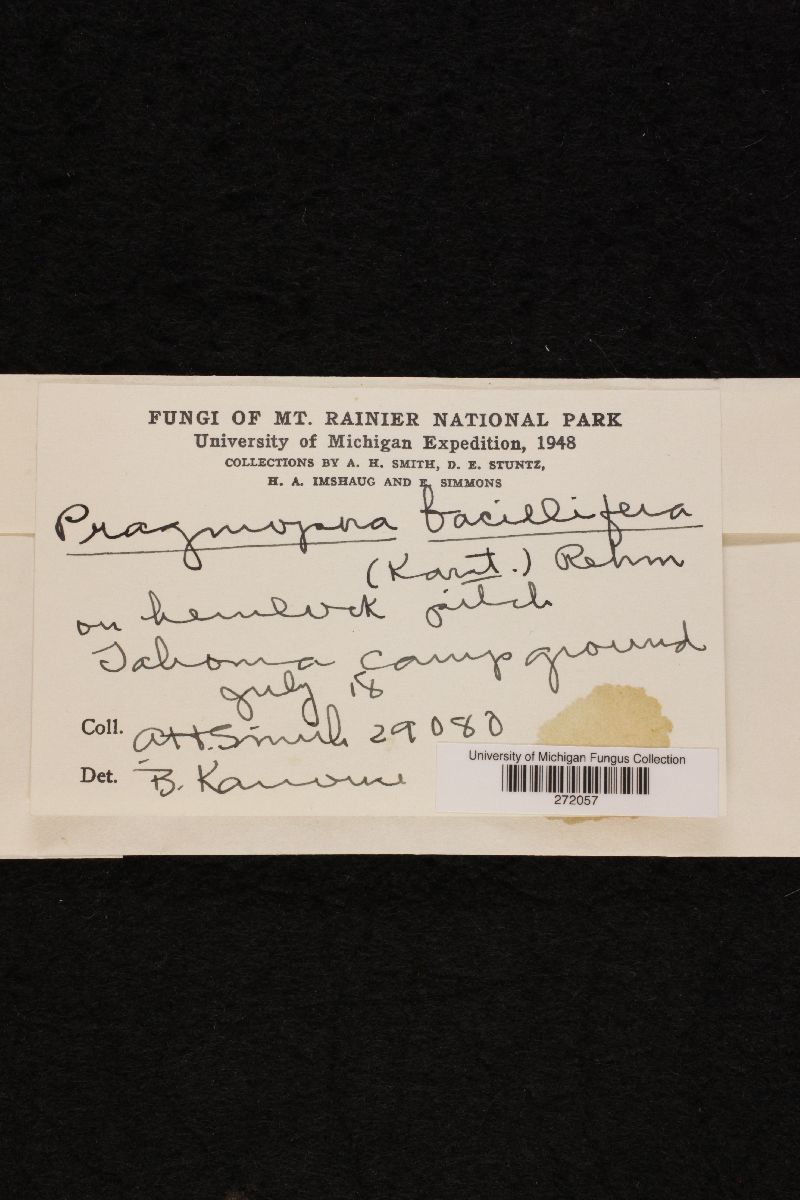 FUNGI OF MT. RAINIER NATIONAL PARK
University of Michigan Expedition, 1948
COLLECTIONS BY A. H. SMITH, D. E. STUNTZ,
H. A. IMSHAUG AND E. SIMMONS
Pragmopora bacillifera
(Karst.) Rehm
on hemlock pitch
Tahoma campground
July 18
Coll. AH.Smith 29080
Det. B. Kanouse
University of Michigan Fungus Collection
272057